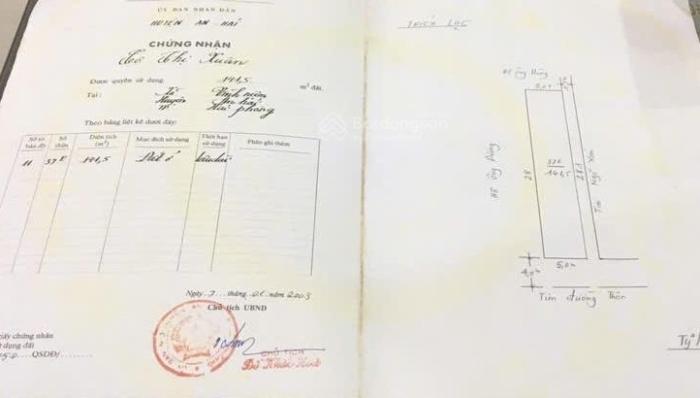 ỦY BAN NHÂN DÂN
HUYỆN AN HẢI
CHỨNG NHẬN
Thị Xuân
Được quyền sử dụng 141,5 m² đất.
Tại: Xã Vĩnh niệm
Huyện An hải
TP Hải phòng
Theo bảng liệt kê dưới đây:
Số tờ bản đồ
Số thửa
Diện tích (m²)
Mục đích sử dụng
Thời hạn sử dụng
Phần ghi thêm
11 37E 141,5 Đất ở lâu dài
Ngày 7 tháng 01 năm 2003
Chủ tịch UBND
CHỦ TỊCH
giấy chứng nhận
sử dụng đất
QSDĐ/
TRÍCH LỤC
Hộ ông Hùng
5,0m
Hộ ông Dũng
28
37E
141,5
28,1
Tim Ngõ Xóm
5,0m
4,0m
Tim đường Thôn
Tỷ lệ
Batdongsan